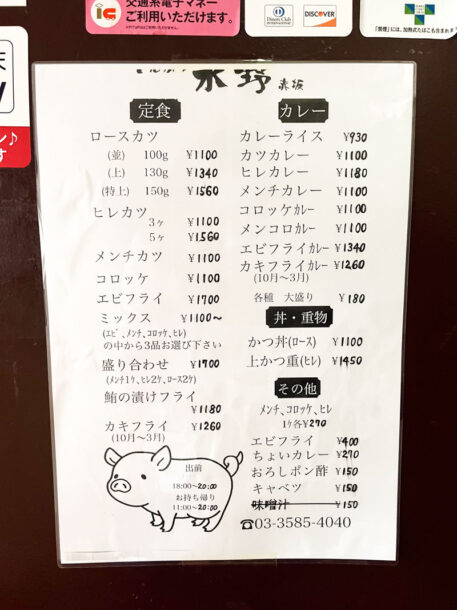 交通系電子マネー
ご利用いただけます。
Diners Club
INTERNATIONAL
DISCOVER
水野 赤坂
定食
ロースカツ
(並) 100g ¥1100
(上) 130g ¥1340
(特上) 150g ¥1560
ヒレカツ
3ヶ ¥1100
5ヶ ¥1560
メンチカツ ¥1100
コロッケ ¥1100
エビフライ ¥1700
ミックス ¥1100〜
(エビ、メンチ、コロッケ、ヒレ)
の中から3品お選び下さい
盛り合わせ ¥1700
(メンチ1ケ、ヒレ2ケ、ロース2ケ)
鮪の漬けフライ
¥1180
カキフライ ¥1260
(10月〜3月)
出前
18:00〜20:00
お持ち帰り
11:00〜20:00
カレー
カレーライス ¥930
カツカレー ¥1100
ヒレカレー ¥1180
メンチカレー ¥1100
コロッケカレー ¥1100
メンコロカレー ¥1100
エビフライカレー ¥1340
カキフライカレー ¥1260
(10月〜3月)
各種 大盛り ¥180
丼・重物
かつ丼(ロース) ¥1100
上かつ重(ヒレ) ¥1450
その他
メンチ、コロッケ、ヒレ
1ヶ各¥270
エビフライ ¥400
ちょいカレー ¥270
おろしポン酢 ¥150
キャベツ ¥150
味噌汁 ¥150
☎03-3585-4040